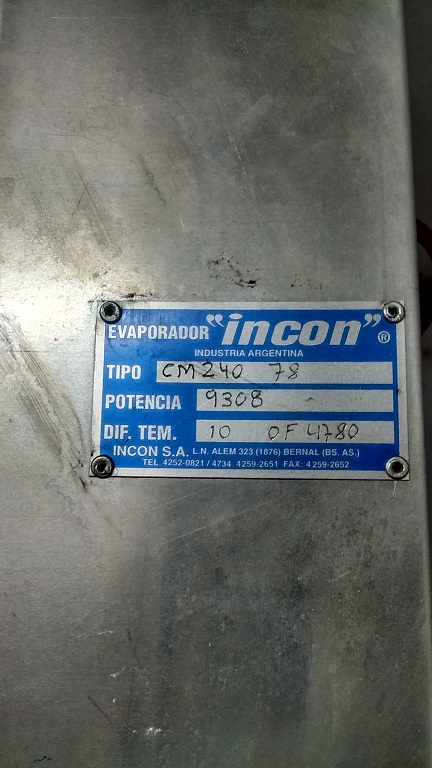 EVAPORADOR "incon" ®
INDUSTRIA ARGENTINA
TIPO CM240 78
POTENCIA 9308
DIF. TEM. 10 OF 4780
INCON S.A. L.N. ALEM 323 (1876) BERNAL (BS. AS.)
TEL 4252-0821 / 4734 4259-2651 FAX: 4259-2652